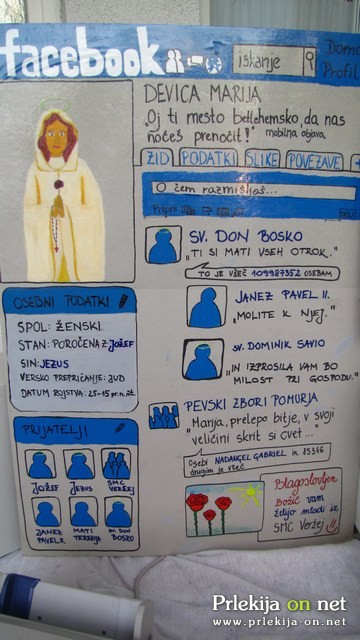 facebook
iskanje
Domo
Profil
DEVICA MARIJA
„Oj ti mesto betlehemsko, da nas
nočeš prenočit!"
mobilna objava
ZID
PODATKI
SLIKE
POVEZAVE
O čem razmišljaš...
SV. DON BOSKO
„TI SI MATI VSEH OTROK."
TO JE VŠEČ 109987352 OSEBAM
JANEZ PAVEL II.
„MOLITE K NJEJ."
SV. DOMINIK SAVIO
„IN IZPROSILA VAM BO
MILOST PRI GOSPODU."
PEVSKI ZBORI POMURJA
„Marija, prelepo bitje, v svoji
veličini skrit si cvet..."
Osebi NADANGEL GABRIEL in 85346
drugim je všeč
OSEBNI PODATKI
SPOL: ŽENSKI
STAN: POROČENA Z JOŽEF
SIN: JEZUS
VERSKO PREPRIČANJE: JUD
DATUM ROJSTVA: 25-15 pr.n.št.
PRIJATELJI
JOŽEF
JEZUS
SMC
VERŽEJ
JANEZ
PAVEL II.
MATI
TEREZIJA
SV. DON
BOSKO
Blagoslovljen
Božič vam
želijo mladi iz
SMC Veržej
Prlekija on net
www.prlekija-on.net